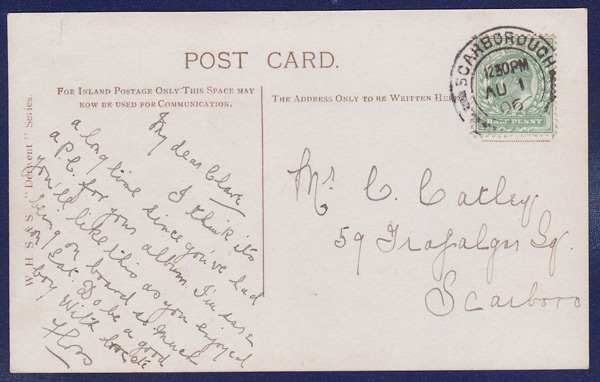 POST CARD.
FOR INLAND POSTAGE ONLY THIS SPACE MAY
NOW BE USED FOR COMMUNICATION.
THE ADDRESS ONLY TO BE WRITTEN HERE
W. H. S. & S. "Derwent" Series.
My dear Clare
I think it's
a long time since you've had
a P.C. for your album. I'm sure
You'll like this as you enjoyed
being on board so much
on Sat. Do be a good
boy With love
Floss
Mr C. Catley
59 Trafalgar Sq.
Scarboro
SCARBOROUGH
12.30PM
AU 1
06
HALF PENNY